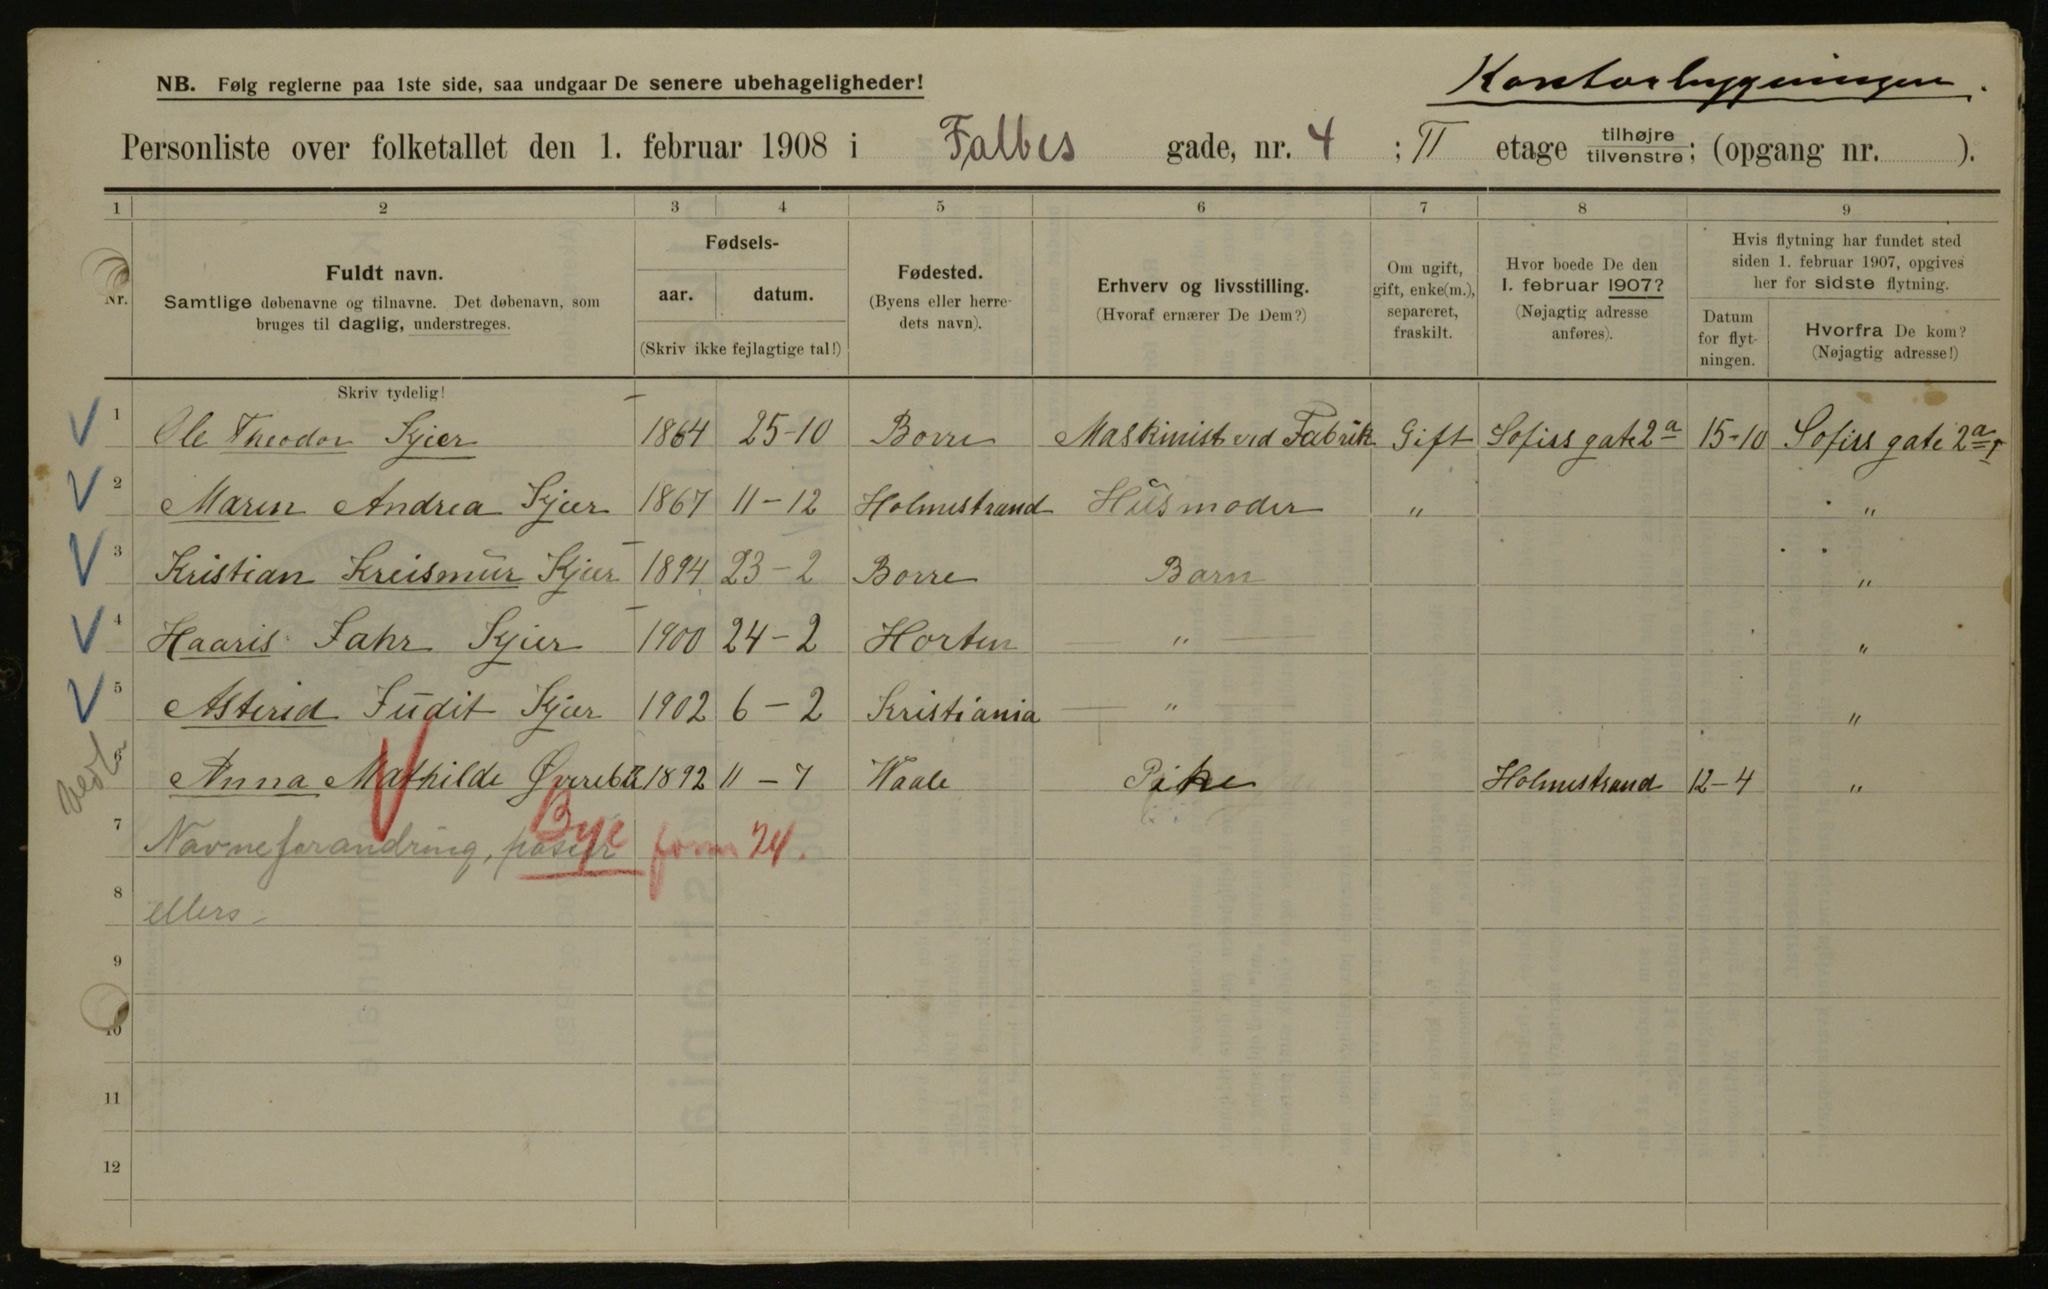 Kontorbygningen.
NB. Følg reglerne paa 1ste side, saa undgaar De senere ubehageligheder!
Personliste over folketallet den 1. februar 1908 i Falbes gade, nr. 4 ; II etage tilhøjre/tilvenstre; (opgang nr. ).
1 2 3 4 5 6 7 8 9
Nr.
Fuldt navn.
Samtlige døbenavne og tilnavne. Det døbenavn, som
bruges til daglig, understreges.
Skriv tydelig!
Fødsels-
aar. datum.
(Skriv ikke fejlagtige tal!)
Fødested.
(Byens eller herre-
dets navn).
Erhverv og livsstilling.
(Hvoraf ernærer De Dem?)
Om ugift,
gift, enke(m.),
separeret,
fraskilt.
Hvor boede De den
1. februar 1907?
(Nøjagtig adresse
anføres).
Hvis flytning har fundet sted
siden 1. februar 1907, opgives
her for sidste flytning.
Datum
for flyt-
ningen.
Hvorfra De kom?
(Nøjagtig adresse!)
1 Ole Theodor Kjær 1864 25-10 Borre Maskinist ved Fabrik Gift Sofies gate 2a 15-10 Sofies gate 2a
2 Maren Andrea Kjær 1867 11-12 Holmestrand Husmoder " "
3 Kristian Kreismur Kjær 1894 23-2 Borre Barn "
4 Haaris Jahr Kjær 1900 24-2 Horten " "
5 Asterid Judit Kjær 1902 6-2 Kristiania " "
6 Anna Mathilde 1892 11-7 Vaale Pike Holmestrand 12-4 "
7 Navneforandring, passer
Bye form 24.
8 ellers
9
10
11
12